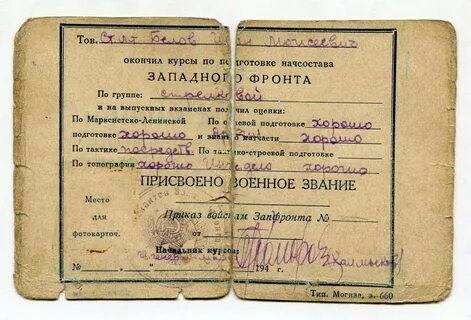 Тов. Ст. л-т Белов Иван Моисеевич
окончил курсы по подготовке начсостава
ЗАПАДНОГО ФРОНТА
По группе: стрелковой
и на выпускных экзаменах получил оценки:
По Марксистско-Ленинской По огневой подготовке хорошо
подготовке хорошо и знание матчасти хорошо
По тактике посредств По тактико-строевой подготовке
По топографии хорошо Инж. дело хорошо
ПРИСВОЕНО ВОЕННОЕ ЗВАНИЕ
Место для фотокарточ.
Приказ войскам Запфронта №
от
Начальник курсов
№ " " 194 г.
Тип. Москва, з. 660